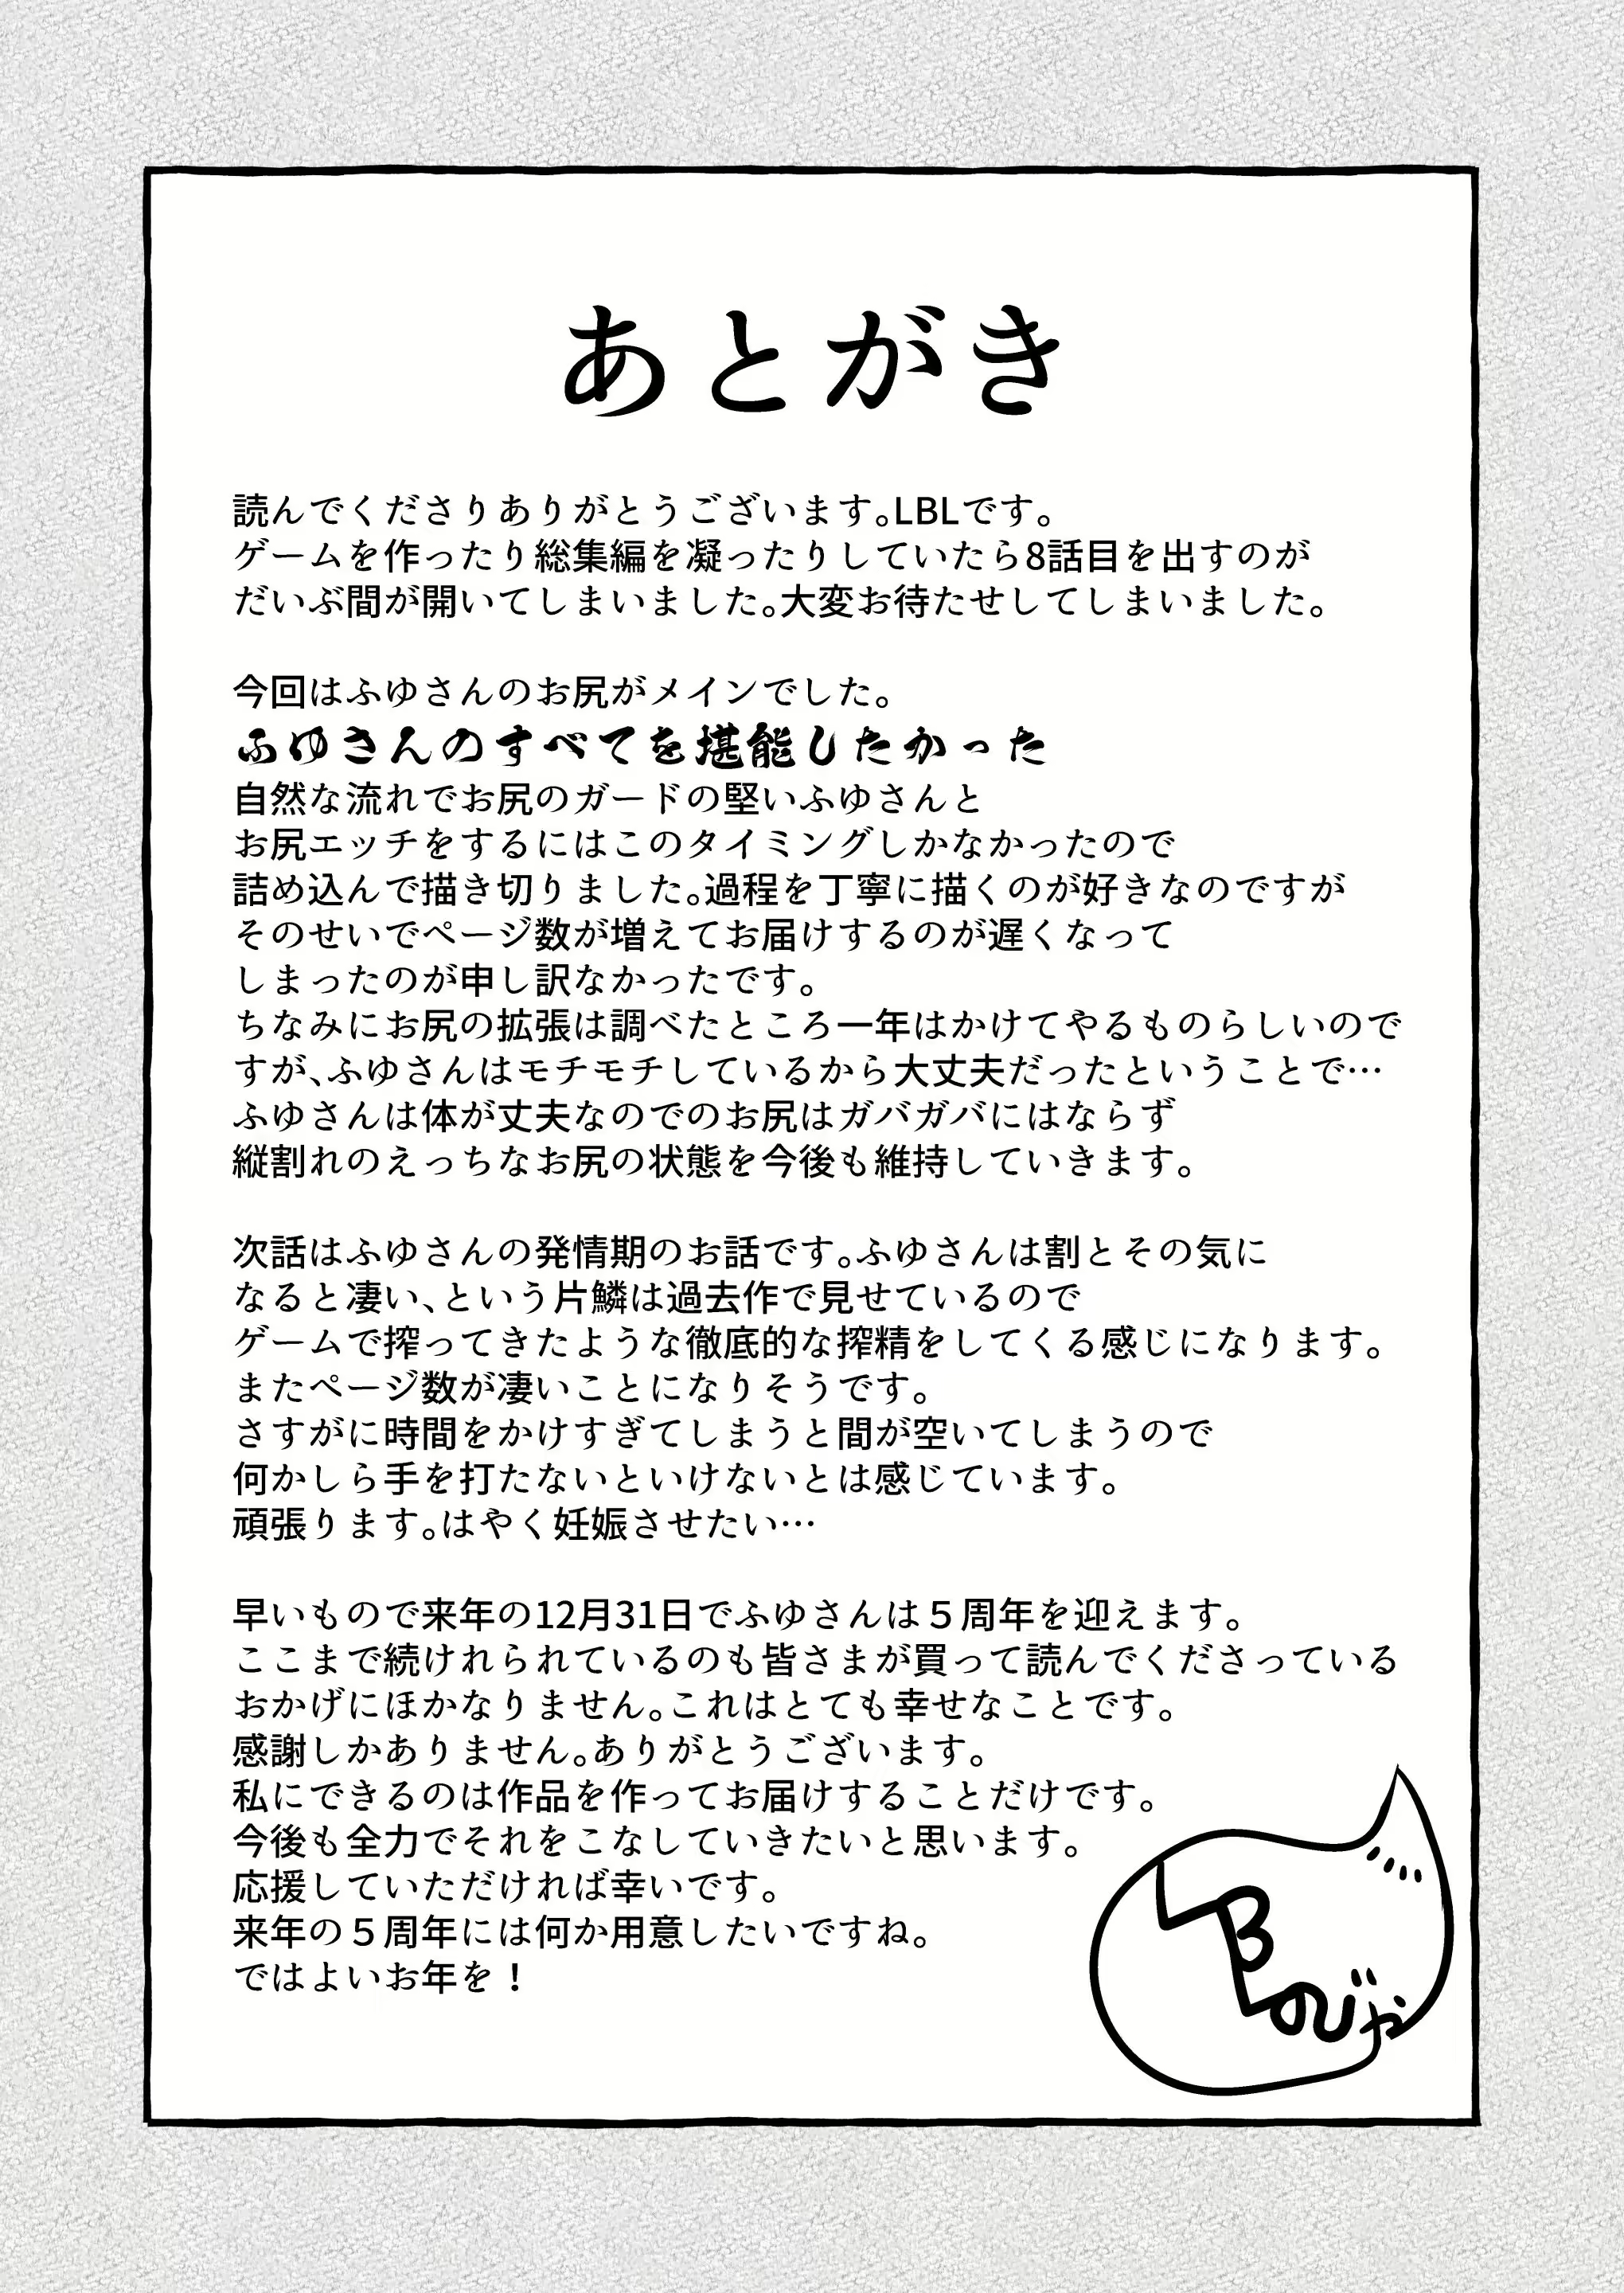 あとがき
読んでくださりありがとうございます。LBLです。
ゲームを作ったり総集編を凝ったりしていたら8話目を出すのが
だいぶ間が開いてしまいました。大変お待たせしてしまいました。
今回はふゆさんのお尻がメインでした。
ふゆさんのすべてを堪能したかった
自然な流れでお尻のガードの堅いふゆさんと
お尻エッチをするにはこのタイミングしかなかったので
詰め込んで描き切りました。過程を丁寧に描くのが好きなのですが
そのせいでページ数が増えてお届けするのが遅くなって
しまったのが申し訳なかったです。
ちなみにお尻の拡張は調べたところ一年はかけてやるものらしいので
すが、ふゆさんはモチモチしているから大丈夫だったということで…
ふゆさんは体が丈夫なのでのお尻はガバガバにはならず
縦割れのえっちなお尻の状態を今後も維持していきます。
次話はふゆさんの発情期のお話です。ふゆさんは割とその気に
なると凄い、という片鱗は過去作で見せているので
ゲームで搾ってきたような徹底的な搾精をしてくる感じになります。
またページ数が凄いことになりそうです。
さすがに時間をかけすぎてしまうと間が空いてしまうので
何かしら手を打たないといけないとは感じています。
頑張ります。はやく妊娠させたい…
早いもので来年の12月31日でふゆさんは５周年を迎えます。
ここまで続けれられているのも皆さまが買って読んでくださっている
おかげにほかなりません。これはとても幸せなことです。
感謝しかありません。ありがとうございます。
私にできるのは作品を作ってお届けすることだけです。
今後も全力でそれをこなしていきたいと思います。
応援していただければ幸いです。
来年の５周年には何か用意したいですね。
ではよいお年を！
LBL